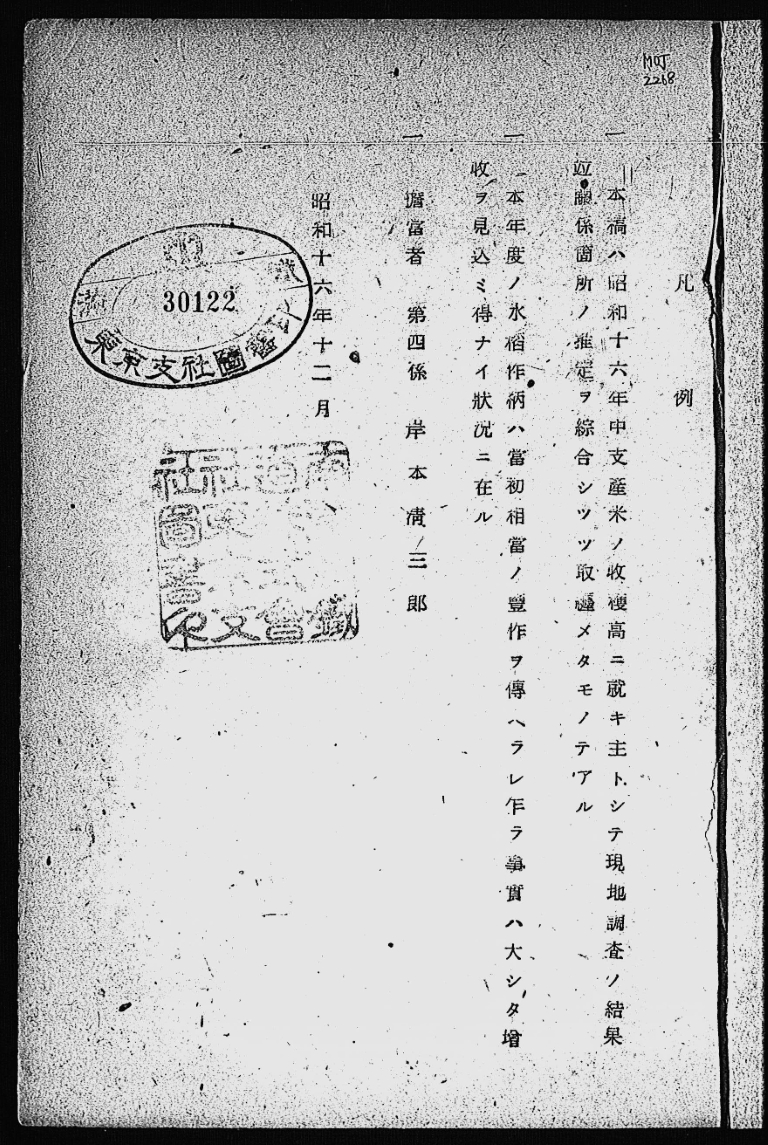 MOJ
2268
凡例
一 本稿ハ昭和十六年中支産米ノ收穫高ニ就キ主トシテ現地調査ノ結果
竝關係箇所ノ推定ヲ綜合シツツ取纏メタモノテアル
一 本年度ノ水稻作柄ハ當初相當ノ豐作ヲ傳ヘラレ乍ラ事實ハ大シタ增
收ヲ見込ミ得ナイ狀況ニ在ル
一 擔當者 第四係 岸本淸三郎
昭和十六年十二月
30122
東京支社圖書